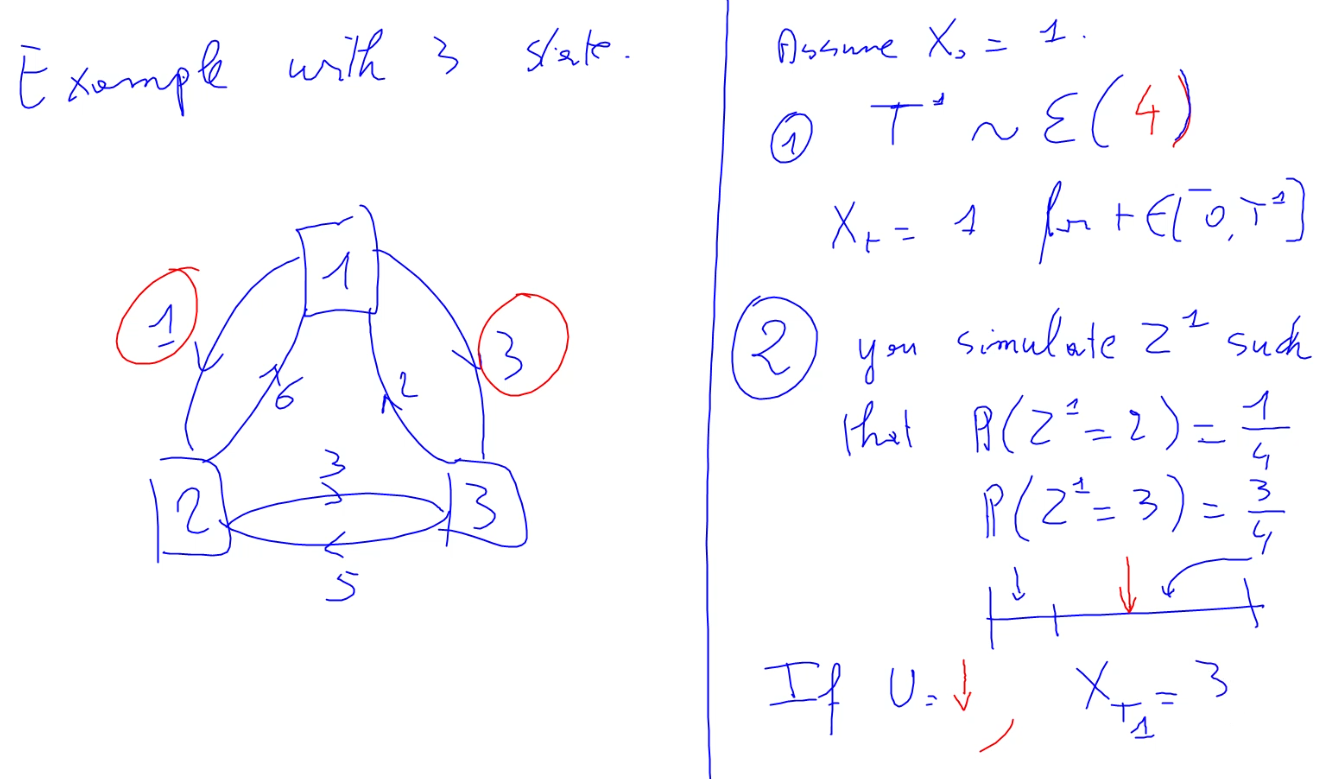 Example with 3 state.
1
1
3
6
2
3
2
3
5
Assume X₀ = 1.
① T¹ ~ ℰ(4)
Xₜ = 1 for t ∈ [0, T¹]
② you simulate Z¹ such
that P(Z¹ = 2) = 1/4
P(Z¹ = 3) = 3/4
If U = ↓, X_T₁ = 3